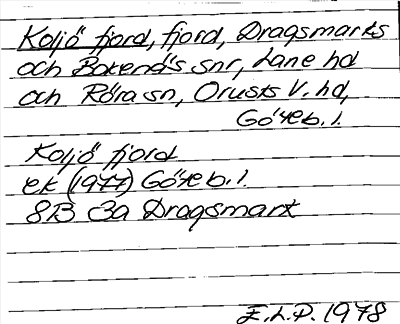 Koljö fjord, fjord, Dragsmarks
och Bokenäs snr, Lane hd
och Röra sn, Orusts V. hd,
Göteb. l.
Koljö fjord
ek (1977) Göteb. l.
8B 3a Dragsmark
E.L.P. 1978